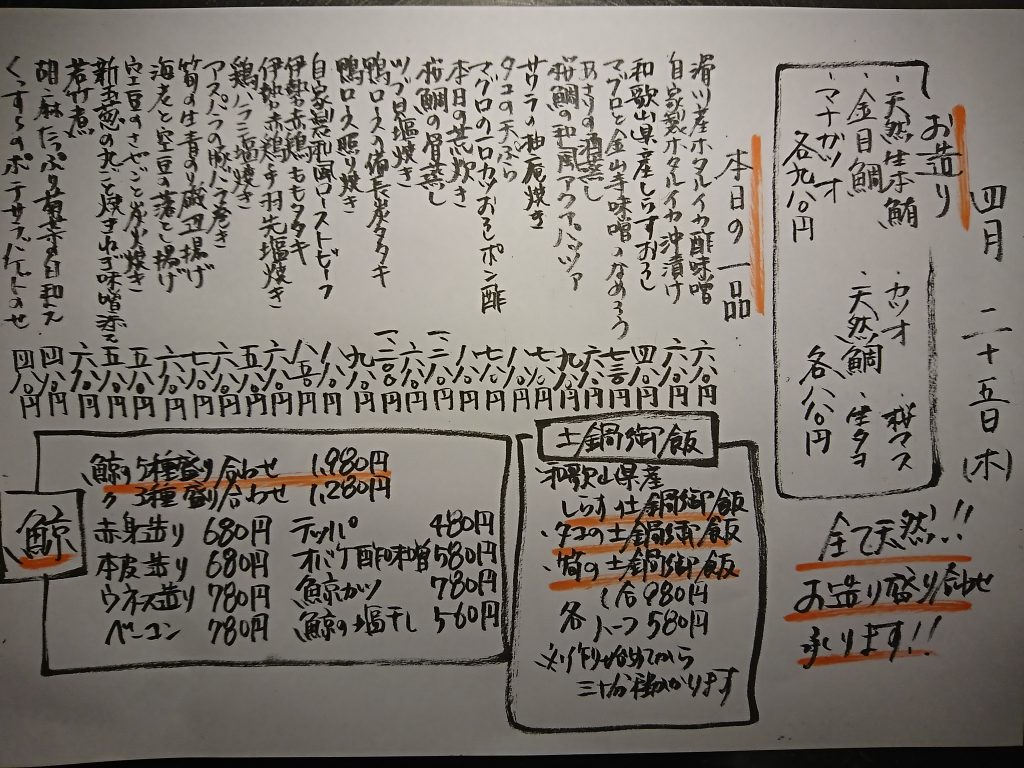 四月 二十五日(木)
お造り
・天然生本鮪
・金目鯛
・マナガツオ
各九八〇円
・カツオ ・桜マス
・天然鯛 ・生タコ
各八八〇円
全て天然!!
お造り盛り合わせ
承ります!!
本日の一品
滑川産ホタルイカ酢味噌 六八〇円
自家製ホタルイカ沖漬け 六八〇円
和歌山県産しらすおろし 四八〇円
マグロと金山寺味噌のなめろう 七三〇円
あさりの酒蒸し 六八〇円
桜鯛の和風アクアパッツァ 九八〇円
サワラの柚庵焼き 七八〇円
タコの天ぷら 八八〇円
マグロの一口カツおろしポン酢 七八〇円
本日の荒炊き 八八〇円
桜鯛の眉蒸し
ツブ貝塩焼き 六八〇円
鴨ロースの備長炭タタキ
鴨ロース照り焼き 九八〇円
自家製和風ローストビーフ 八八〇円
伊勢赤鶏ももタタキ 八八〇円
伊勢赤鶏手羽先塩焼き
鶏ハラミ塩焼き 五八〇円
アスパラの豚バラ巻き 六八〇円
筍の生青のり磯辺揚げ 七八〇円
海老と空豆の落とし揚げ 六八〇円
空豆のさやごと炭火焼き 五八〇円
新玉葱の丸ごと焼きねぎ味噌添え 五八〇円
若竹煮 六八〇円
胡麻たっぷり 四八〇円
くんすらのポテサラバゲットのせ 四八〇円
土鍋御飯
和歌山県産
しらす土鍋御飯
・タコの土鍋御飯
・筍の土鍋御飯
各 1合 980円
ハーフ 580円
※作り始めてから
三十分程かかります
鯨
鯨の5種盛り合わせ 1,980円
〃 3種盛り合わせ 1,280円
赤身造り 680円
本皮造り 680円
ウネス造り 780円
ベーコン 780円
テッパ 480円
オバケ酢味噌 580円
鯨カツ 780円
鯨の塩干し 560円